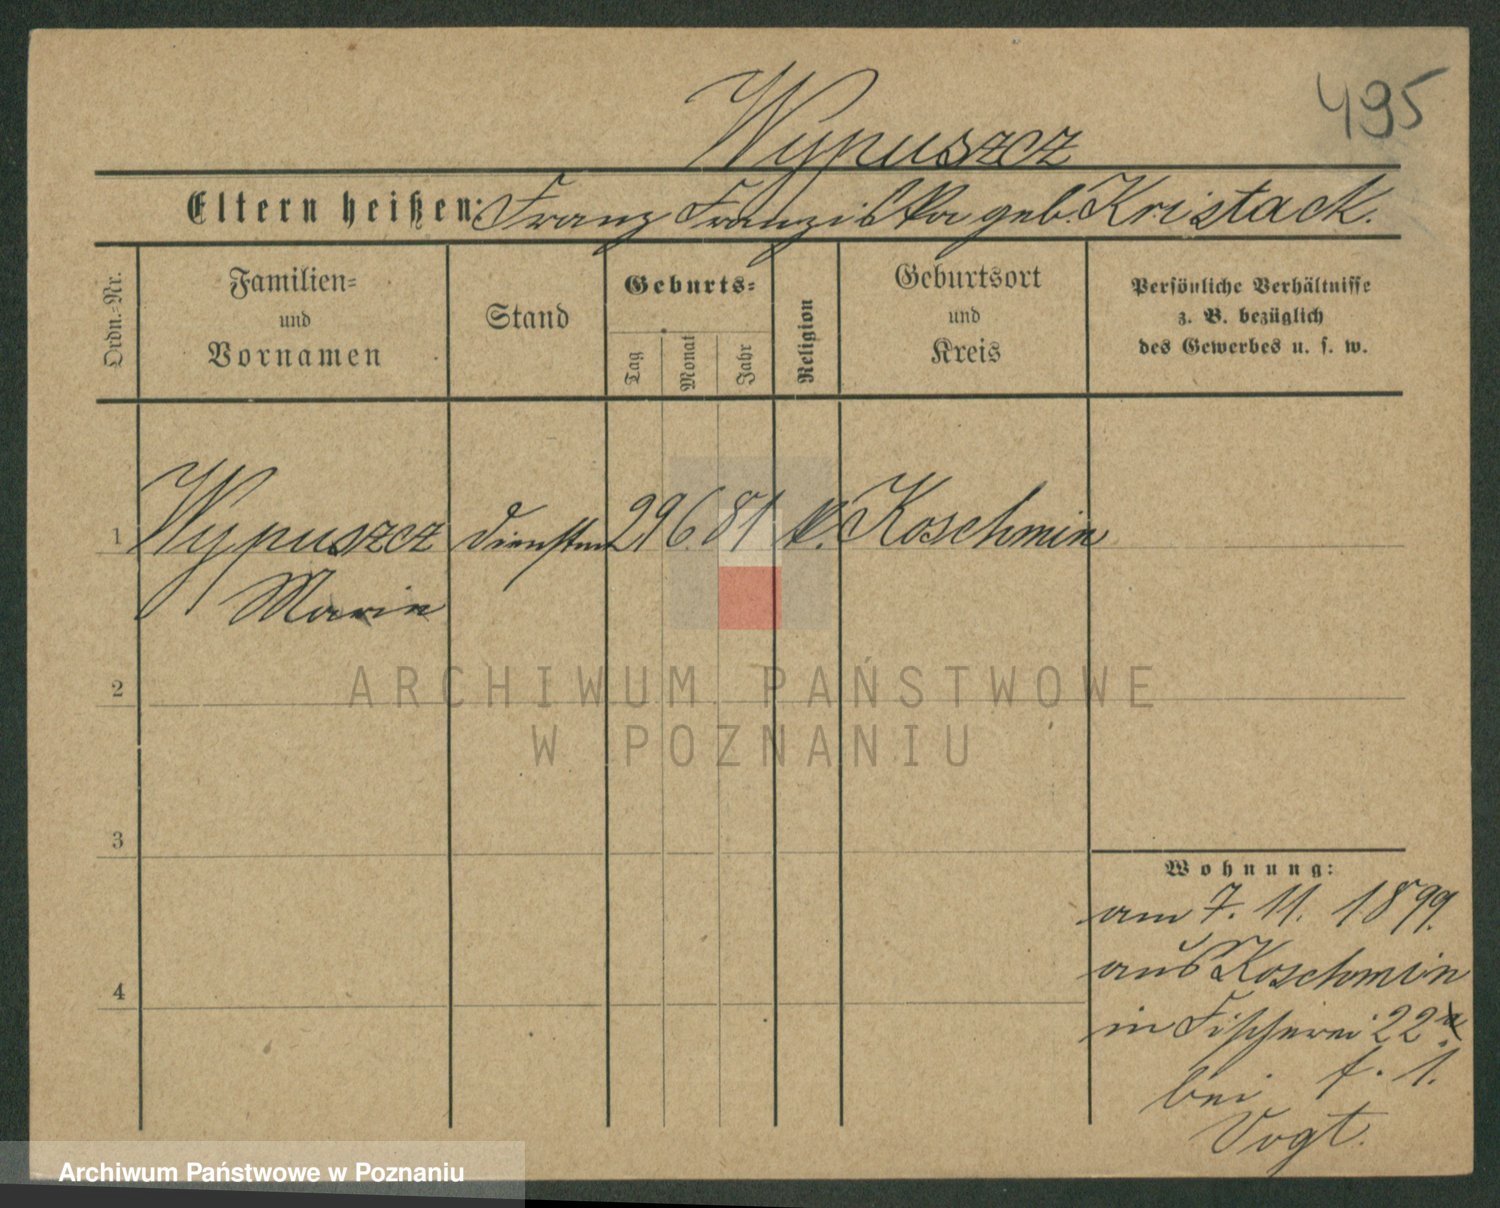 495
Wypuszcz
Eltern heißen: Franz Franziska geb. Kristack.
Ordn.-Nr.
Familien-
und
Vornamen
Stand
Geburts-
Tag
Monat
Jahr
Religion
Geburtsort
und
Kreis
Persönliche Verhältnisse
z. B. bezüglich
des Gewerbes u. s. w.
1 Wypuszcz 29 6. 81 k. Koschmin
Marie
2
3
4
Wohnung:
am 7. 11. 1899.
aus Koschmin
in Fischerei 22
bei
Vogt.
ARCHIWUM PAŃSTWOWE
W POZNANIU
Archiwum Państwowe w Poznaniu